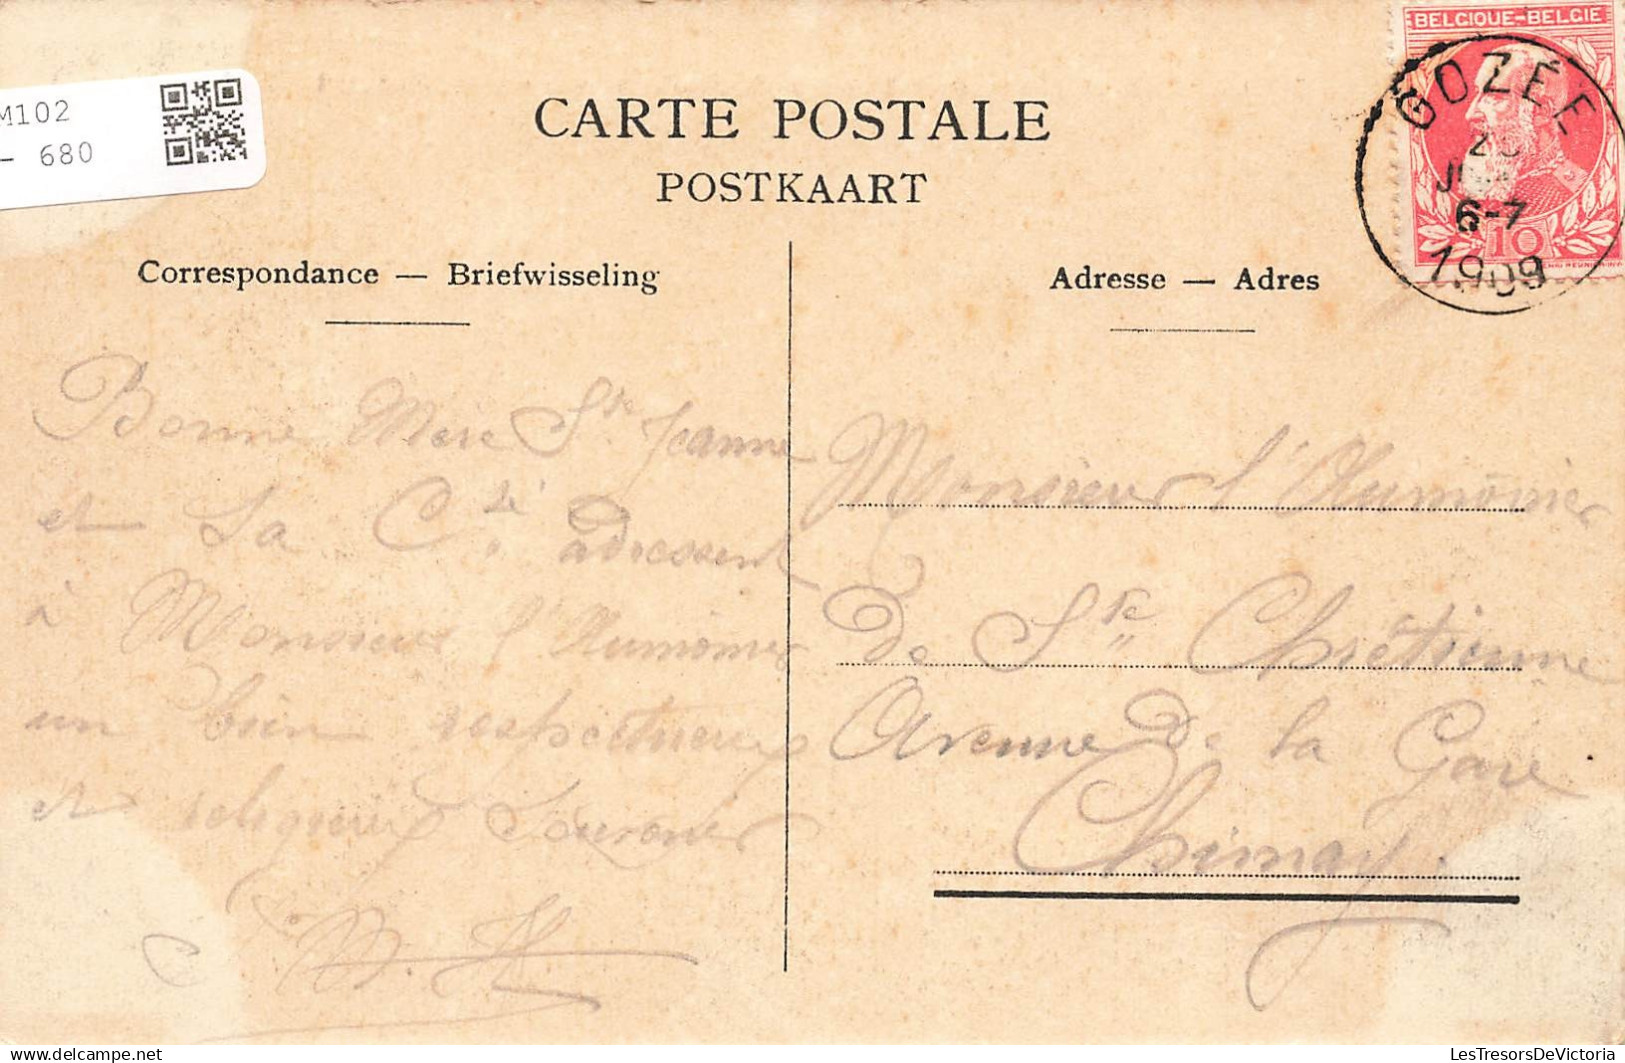 M102
- 680
CARTE POSTALE
POSTKAART
BELGIQUE-BELGIE
GOZÉE
6-7
1909
10
Correspondance — Briefwisseling
Adresse — Adres
Bonne Mère Ste Jeanne
et La Cté adressent
à Monsieur l'Aumônier
un bien respectueux
et religieux Souvenir
Monsieur l'Aumônier
de Ste Chrétienne
Avenue de la Gare
Chimay.
LesTresorsDeVictoria
delcampe.net